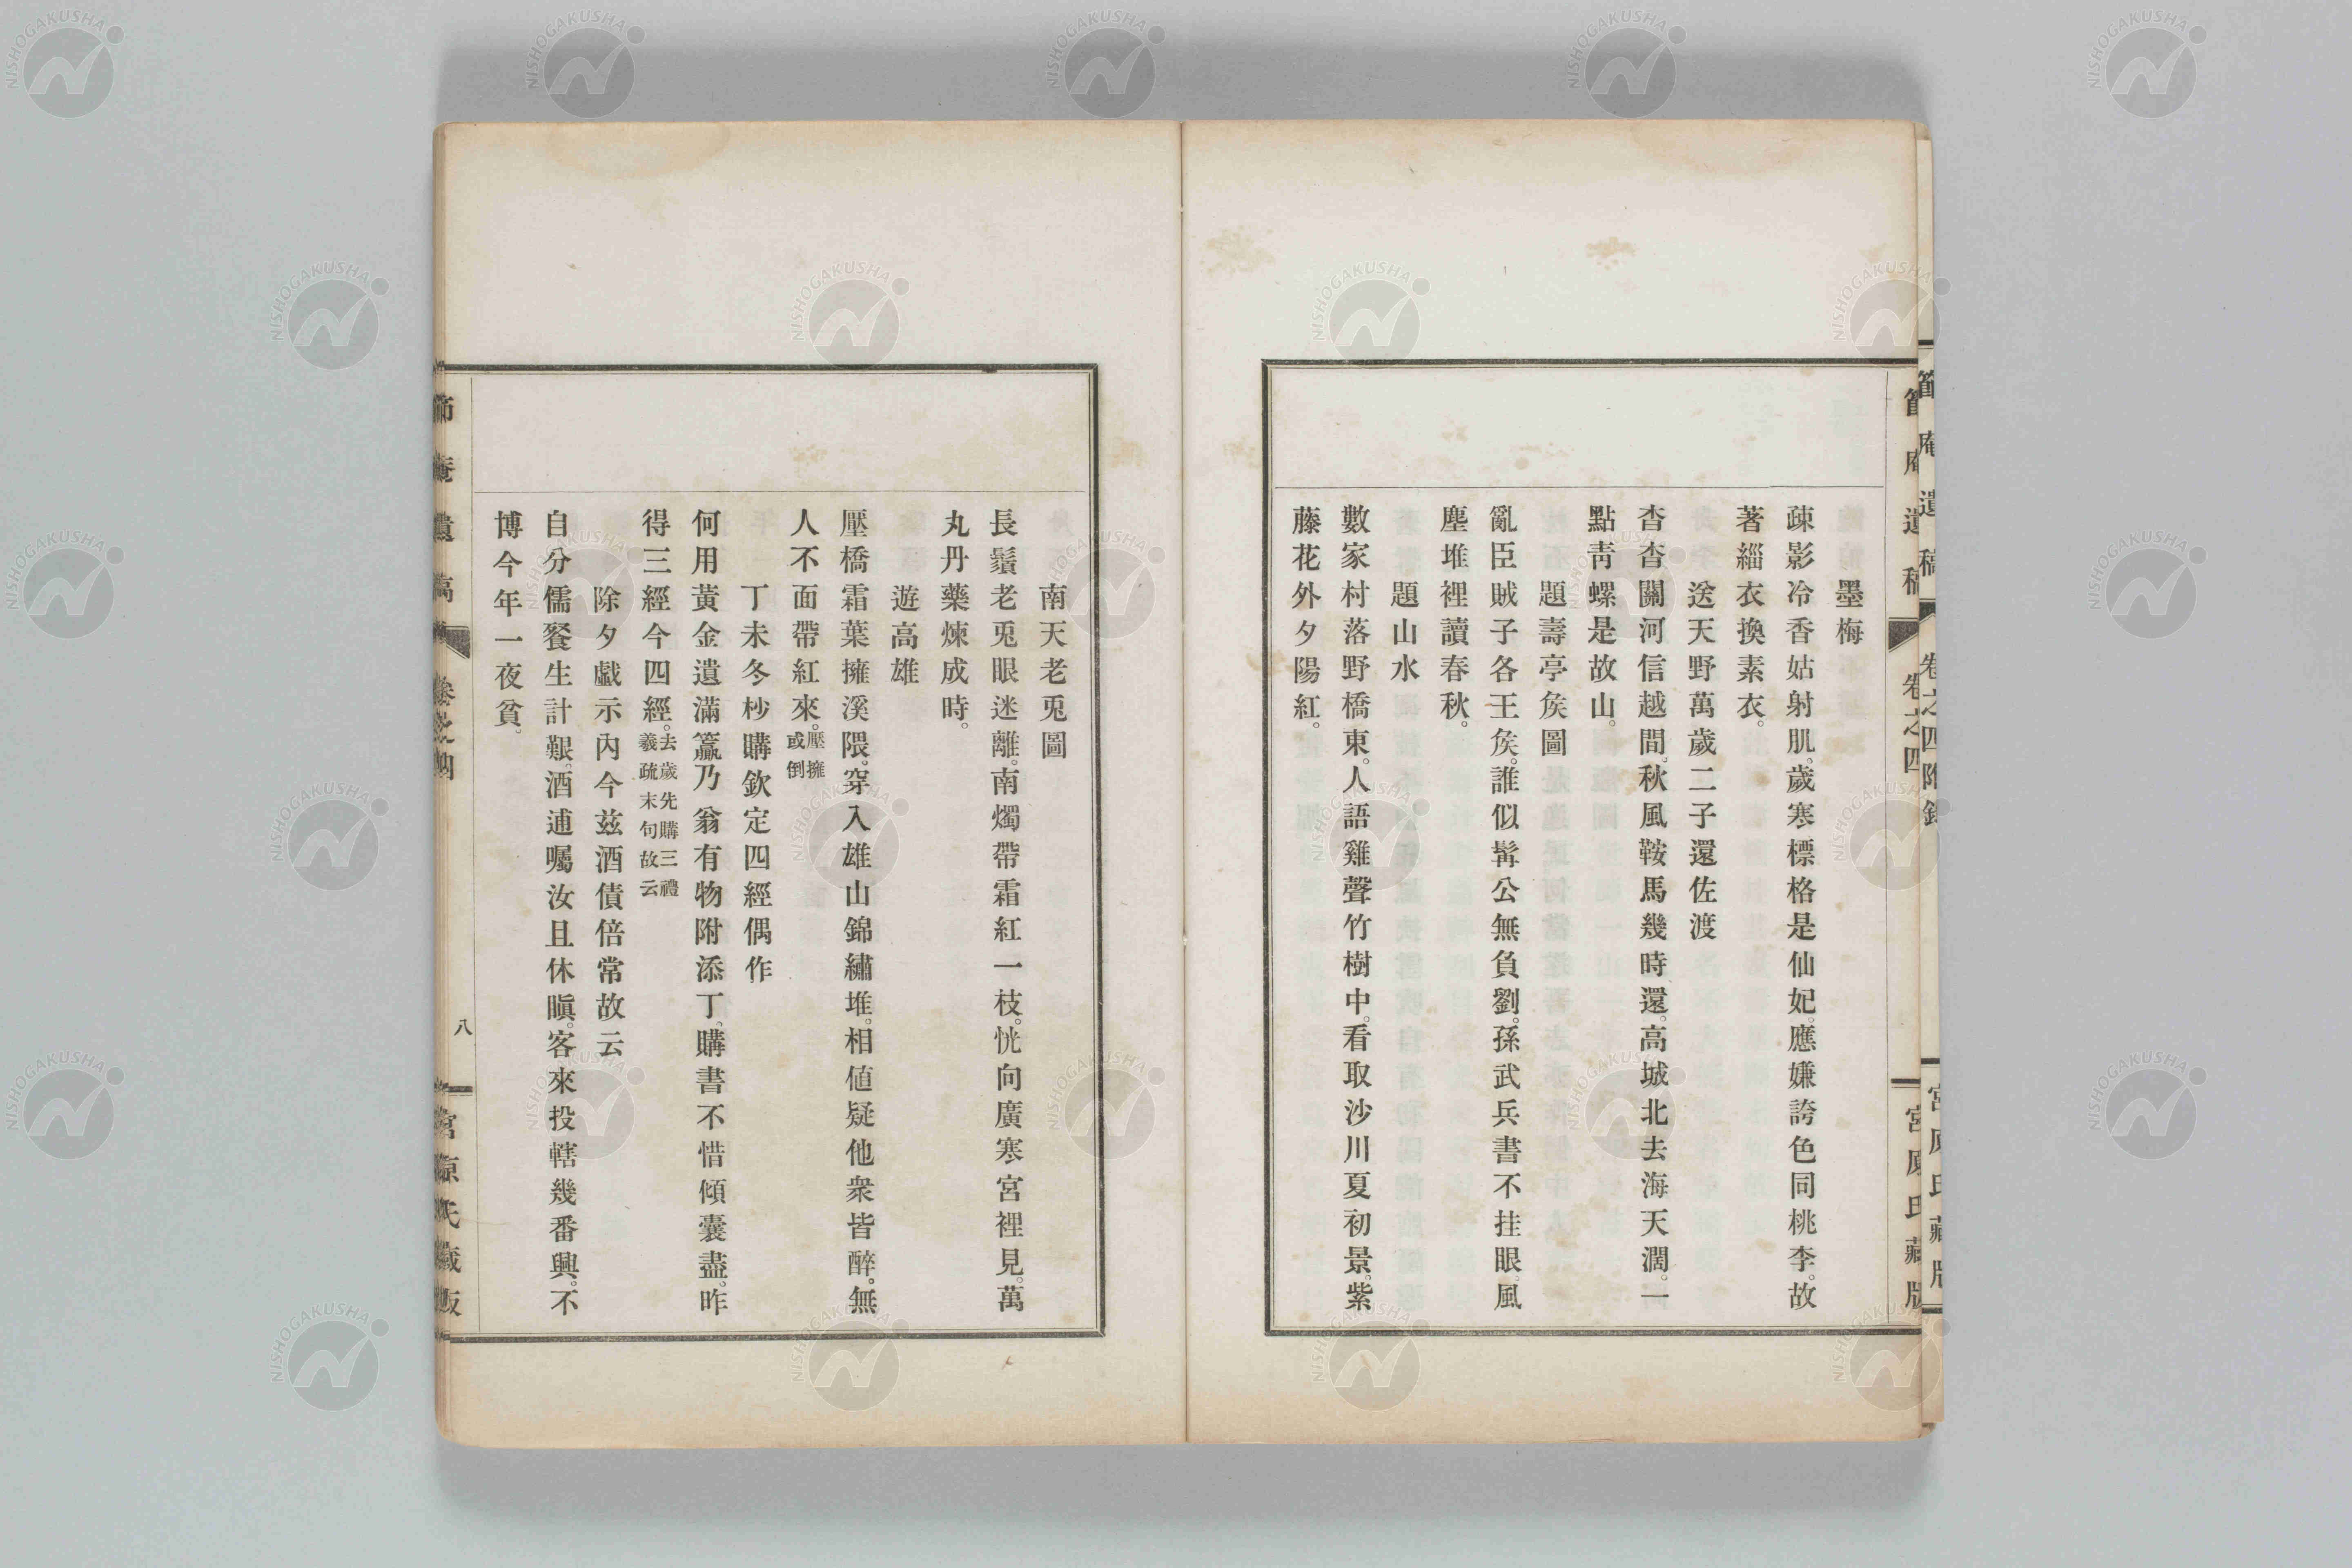 墨梅
疎影冷香姑射肌。歲寒標格是仙妃。應嫌誇色同桃李。故
著緇衣換素衣。
送天野萬歲二子還佐渡
杳杳關河信越間。秋風鞍馬幾時還。高城北去海天濶。一
點靑螺是故山。
題壽亭矦圖
亂臣賊子各王矦。誰似髯公無負劉。孫武兵書不挂眼。風
塵堆裡讀春秋。
題山水
數家村落野橋東。人語雞聲竹樹中。看取沙川夏初景。紫
藤花外夕陽紅。
南天老兎圖
長鬚老兎眼迷離。南燭帶霜紅一枝。恍向廣寒宮裡見。萬
丸丹藥煉成時。
遊高雄
壓橋霜葉擁溪隈。穿入雄山錦繡堆。相値疑他衆皆醉。無
人不面帶紅來。壓擁
或倒
丁未冬杪購欽定四經偶作
何用黃金遺滿籯。乃翁有物附添丁。購書不惜傾囊盡。昨
得三經今四經。去歲先購三禮
義疏末句故云
除夕戲示內今茲酒債倍常故云
自分儒餐生計艱。酒逋囑汝且休瞋。客來投轄幾番興。不
博今年一夜貧。
節庵遺稿
卷之四
八
宮原氏藏版
節庵遺稿
卷之四
宮原氏藏版
節庵遺稿
卷之四附錄
宮原氏藏版
NISHOGAKUSHA